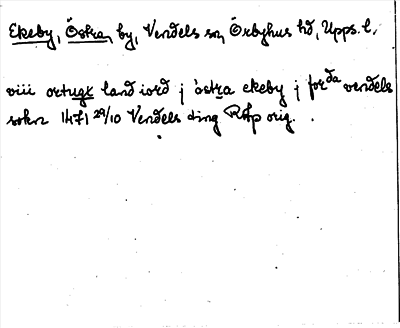 Ekeby, Östra, by, Vendels sn, Örbyhus hd, Upps. l.
viii ortugx land iord j östra ekeby j forda vendels
sokn 1471 29/10 Vendels ting RAp orig.